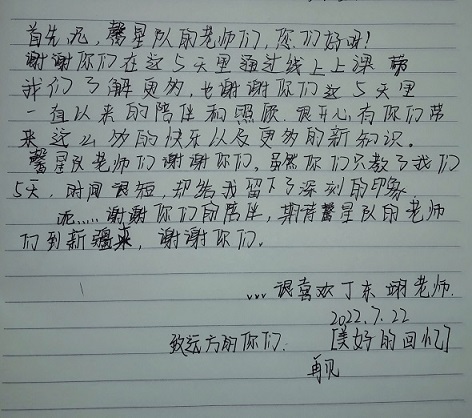 首先呢，馨星队的老师们，您们好呀！
谢谢你们在这5天里通过线上上课带
我们了解更多，也谢谢你们这5天里
一直以来的陪伴和照顾，很开心有你们带
来这么多的快乐以及更多的新知识。
馨星队老师们谢谢你们，虽然你们只教了我们
5天，时间很短，却给我留下了深刻的印象
呃……谢谢你们的陪伴，期待馨星队的老师
们到新疆来，谢谢你们。
…很喜欢丁东翊老师.
2022.7.22
致远方的你们. [美好的回忆]
再见